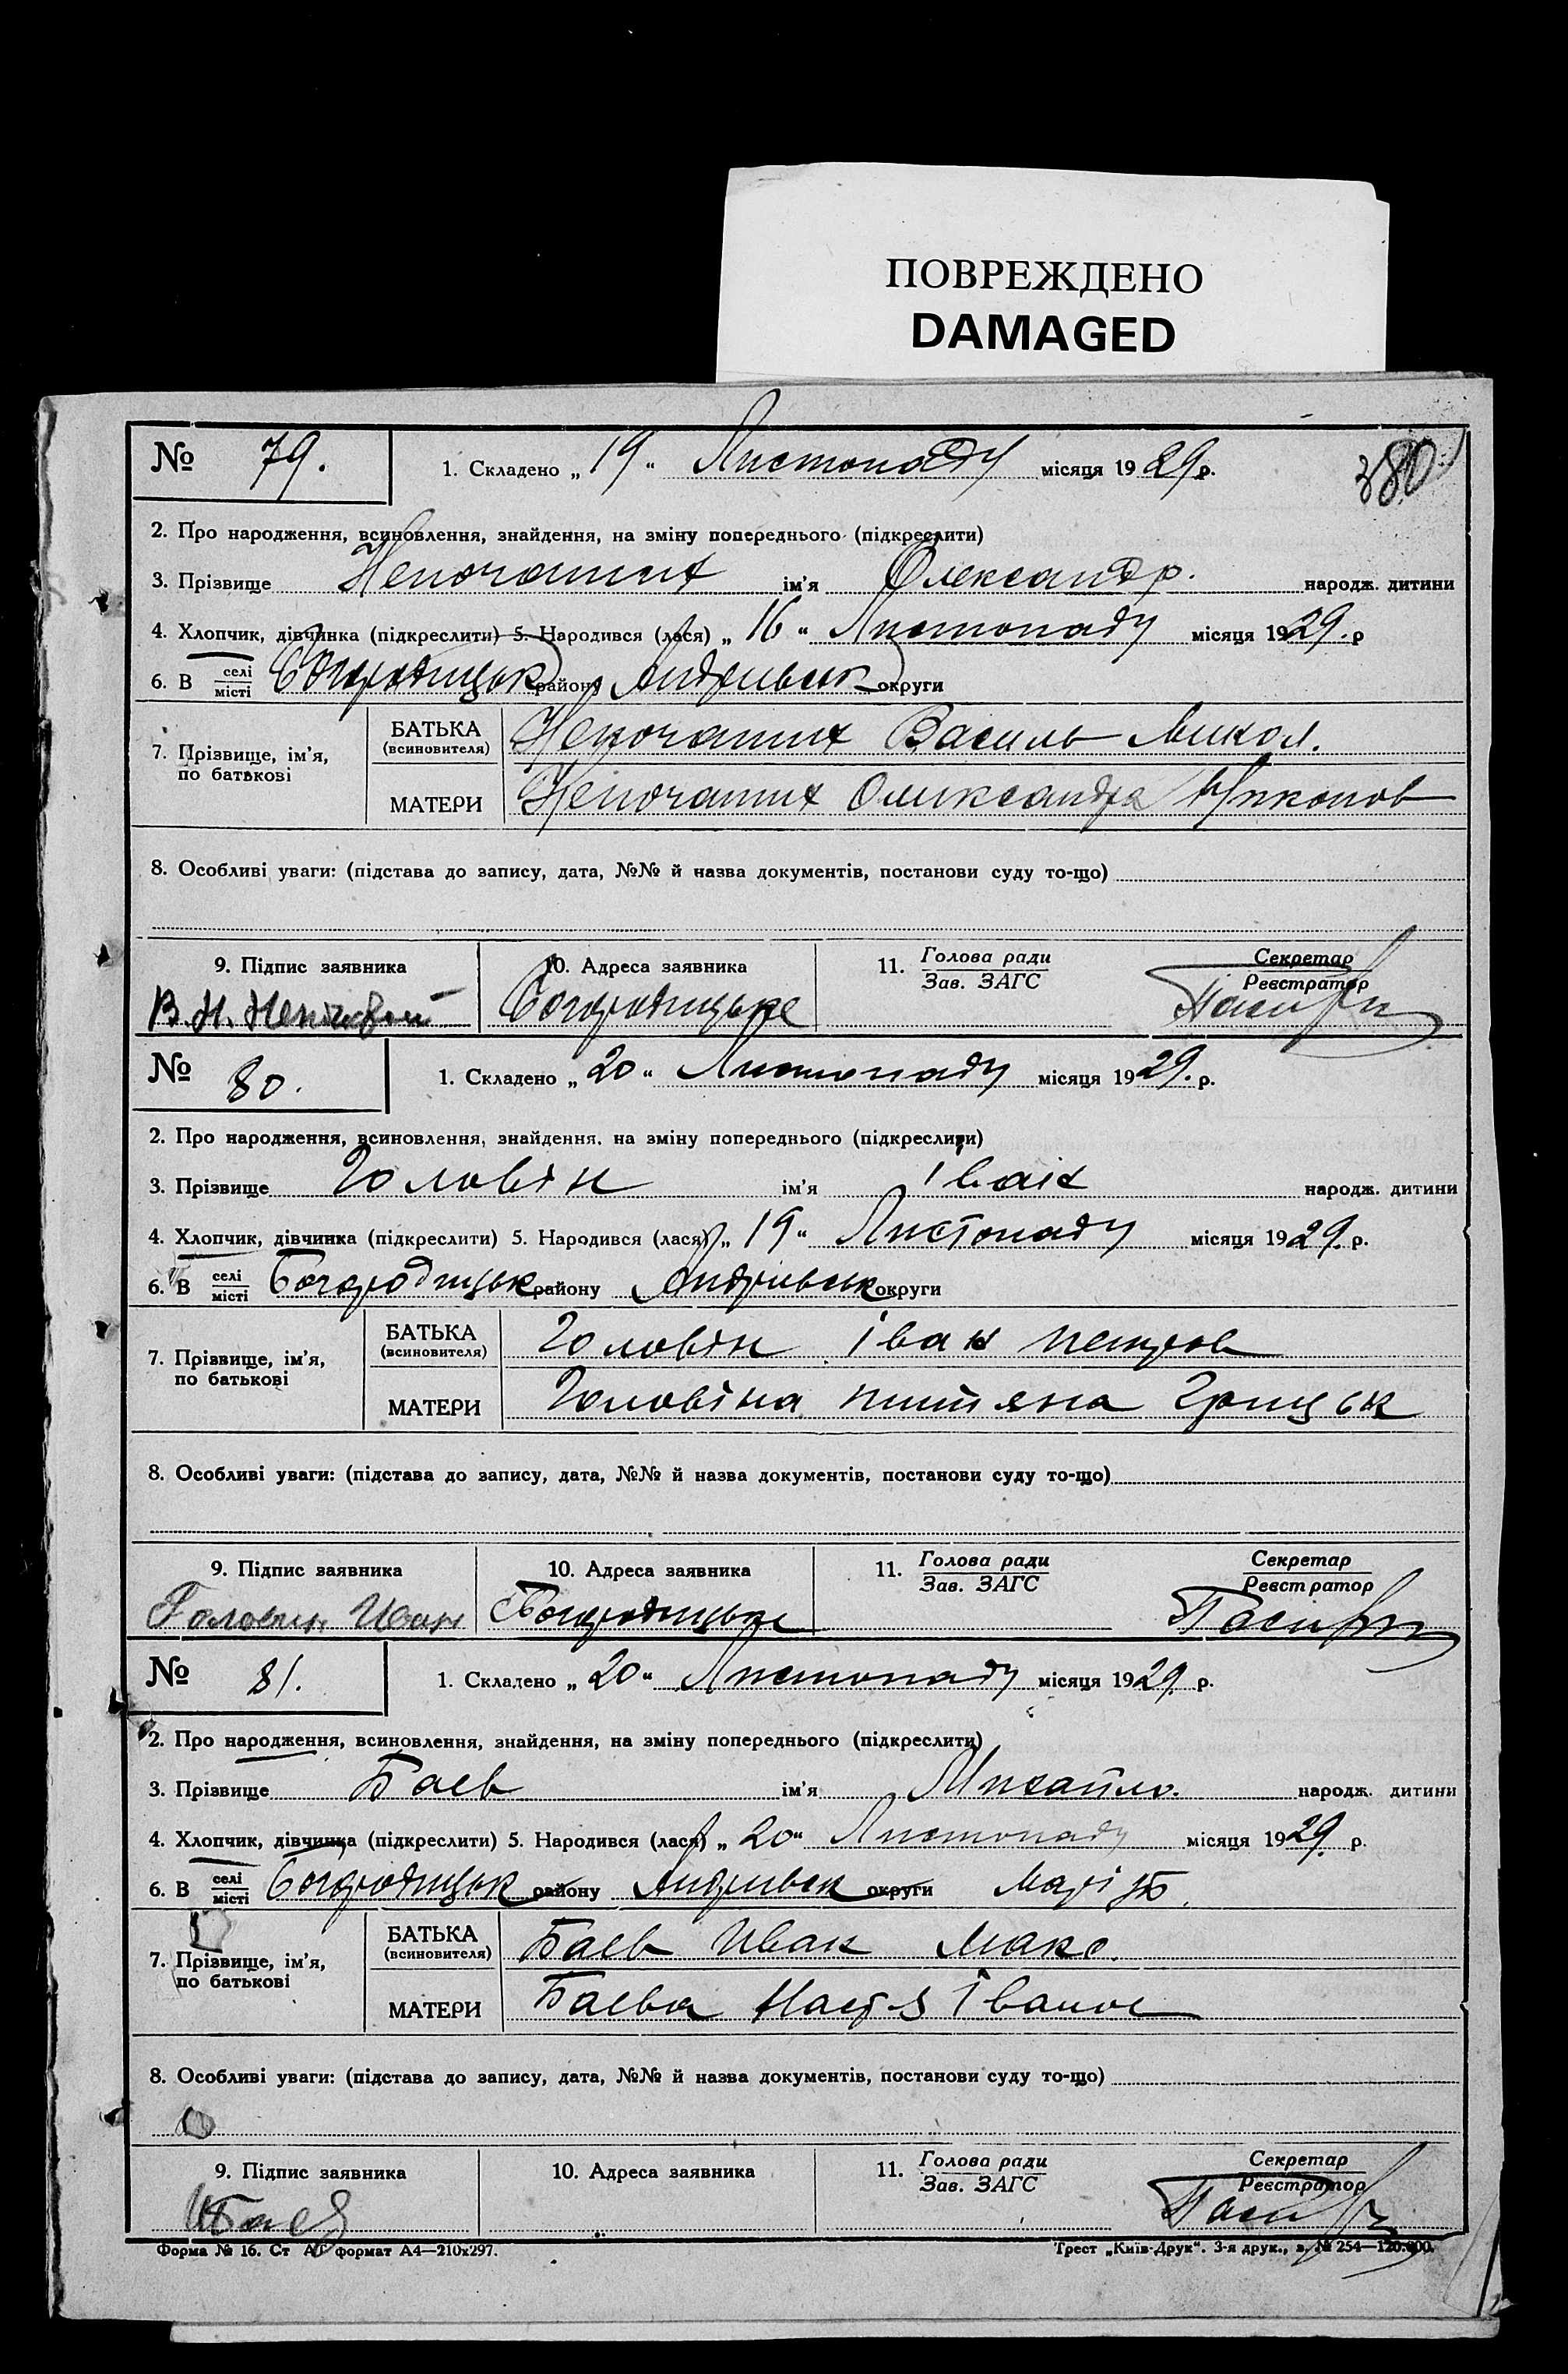 ПОВРЕЖДЕНО
DAMAGED
380
№ 79. 1. Складено „ 19 “ Листопаду місяця 1929 р.
2. Про народження, всиновлення, знайдення, на зміну попереднього (підкреслити)
3. Прізвище Непочатих ім’я Олександр. народж. дитини
4. Хлопчик, дівчинка (підкреслити) 5. Народився (лася) „ 16 “ Листопаду місяця 1929. р
6. В селі/місті Богородицьк району Андрівськ округи
7. Прізвище, ім’я, по батькові БАТЬКА (всиновителя) Непочатих Василь Микол.
МАТЕРИ Непочатих Олександра
8. Особливі уваги: (підстава до запису, дата, №№ й назва документів, постанови суду то-що)
9. Підпис заявника 10. Адреса заявника 11. Голова ради/Зав. ЗАГС Секретар/Реєстратор
В. Н. Богородицьке
№ 80. 1. Складено „ 20 “ Листопаду місяця 1929. р.
2. Про народження, всиновлення, знайдення. на зміну попереднього (підкреслити)
3. Прізвище Головін ім’я Іван народж. дитини
4. Хлопчик, дівчинка (підкреслити) 5. Народився (лася) „ 19 “ Листопаду місяця 1929. р.
6. В селі/місті Богородицьк району Андрівськ округи
7. Прізвище, ім’я, по батькові БАТЬКА (всиновителя) Головін Іван Петров
МАТЕРИ Головіна Грицьк
8. Особливі уваги: (підстава до запису, дата, №№ й назва документів, постанови суду то-що)
9. Підпис заявника 10. Адреса заявника 11. Голова ради/Зав. ЗАГС Секретар/Реєстратор
Головин Иван Богородицьке
№ 81. 1. Складено „ 20 “ Листопаду місяця 1929. р.
2. Про народження, всиновлення, знайдення, на зміну попереднього (підкреслити)
3. Прізвище Баев ім’я Михайло. народж. дитини
4. Хлопчик, дівчинка (підкреслити) 5. Народився (лася) „ 20 “ Листопаду місяця 1929. р.
6. В селі/місті Богородицьк району Андрівськ округи
7. Прізвище, ім’я, по батькові БАТЬКА (всиновителя) Баев Иван Макс.
МАТЕРИ Баева Настя Іванов
8. Особливі уваги: (підстава до запису, дата, №№ й назва документів, постанови суду то-що)
9. Підпис заявника 10. Адреса заявника 11. Голова ради/Зав. ЗАГС Секретар/Реєстратор
И Баев
Форма № 16. Ст АГ формат А4—210х297. Трест „Київ-Друк“. 3-я друк., з. № 254—120.000.